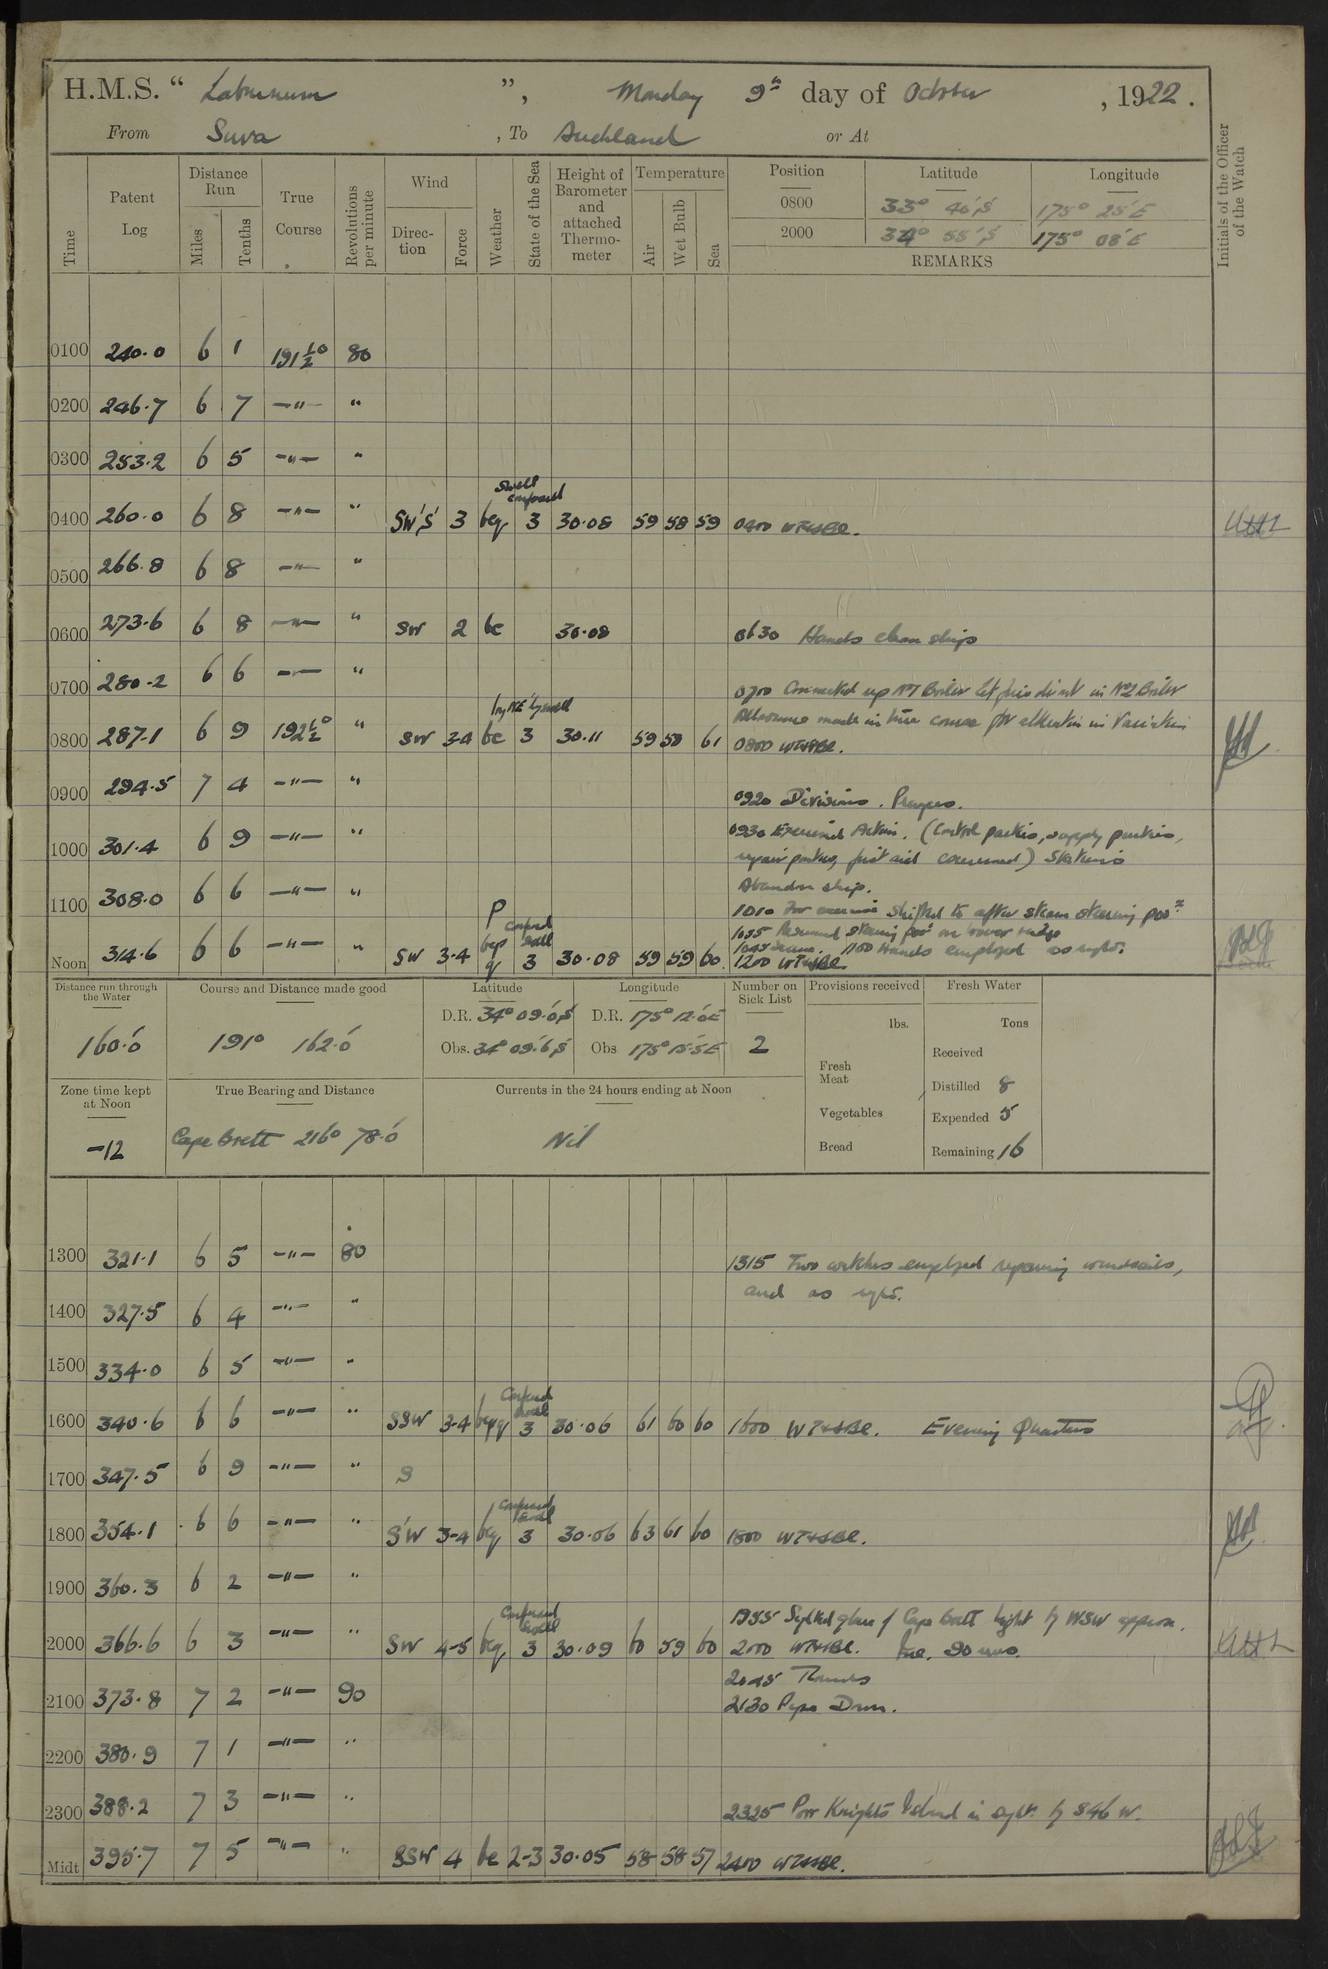 H.M.S. “ Laburnum ”, Monday 9th day of October, 1922.
From Suva, To Auckland or At
Time
Patent Log
Distance Run
Miles
Tenths
True Course
Revolutions per minute
Wind
Direction
Force
Weather
State of the Sea
Height of Barometer and attached Thermometer
Temperature
Air
Wet Bulb
Sea
Position Latitude Longitude
0800 33° 46'S 175° 25'E
2000 34° 55'S 175° 08'E
REMARKS
Initials of the Officer of the Watch
0100 240.0 6 1 191½° 80
0200 246.7 6 7 —"— "
0300 253.2 6 5 —"— "
swell confused
0400 260.0 6 8 —"— " SW'S' 3 bcq 3 30.08 59 58 59 0400 WT&SBC.
0500 266.8 6 8 —"— "
0600 273.6 6 8 —"— " SW 2 bc 30.08 0630 Hands clean ship
0700 280.2 6 6 —"— " 0700 Connected up No 1 Boiler let fires die out in No 2 Boiler
Allowance made in true course for alteration in Variation
0800 287.1 6 9 192½° " SW 3-4 bc 3 30.11 59 58 61 0800 WT&SBC.
0900 294.5 7 4 —"— " 0920 Divisions. Prayers.
1000 301.4 6 9 —"— " 0930 Exercised Action. (Control parties, supply parties,
repair parties, first aid concerned) Stations
Abandon ship.
1100 308.0 6 6 —"— " 1010 For exercise shifted to after steam steering posn
1035 Resumed steering posn on lower bridge
1100 Hands employed as reqte.
confused swell
Noon 314.6 6 6 —"— " SW 3-4 bcpq 3 30.08 59 59 60 1200 WT&SBC.
Distance run through the Water 160.0
Course and Distance made good 191° 162.0
Latitude
D.R. 34° 09.0'S
Obs. 34° 09.6'S
Longitude
D.R. 175° 12.0'E
Obs 175° 15.5'E
Number on Sick List 2
Provisions received
lbs.
Fresh Meat
Vegetables
Bread
Fresh Water
Tons
Received
Distilled 8
Expended 5
Remaining 16
Zone time kept at Noon -12
True Bearing and Distance Cape Brett 216° 78.0
Currents in the 24 hours ending at Noon Nil
1300 321.1 6 5 —"— 80 1315 Two watches employed repairing windsails,
and as reqte.
1400 327.5 6 4 —"— "
1500 334.0 6 5 —"— "
Confused swell
1600 340.6 6 6 —"— " SSW 3-4 bcpq 3 30.06 61 60 60 1600 WT&SBC. Evening Quarters
1700 347.5 6 9 —"— " S
confused swell
1800 354.1 6 6 —"— " S'W 3-4 bcq 3 30.06 63 61 60 1800 WT&SBC.
1900 360.3 6 2 —"— "
1955 Sighted glare of Cape Brett light by WSW approx.
Confused swell
2000 366.6 6 3 —"— " SW 4-5 bcq 3 30.09 60 59 60 2000 WT&SBC. Inc. 90 revs.
2045 Rounds
2100 373.8 7 2 —"— 90 2130 Pipe Down.
2200 380.9 7 1 —"— "
2300 388.2 7 3 —"— " 2325 Poor Knights Island in sight by S46W.
Midt 395.7 7 5 —"— " SSW 4 bc 2-3 30.05 58 58 57 2400 WT&SBC.